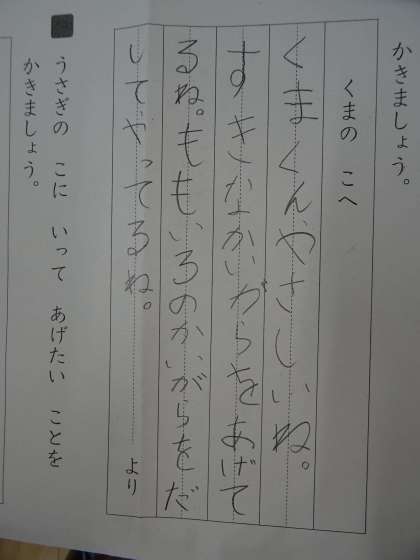 かきましょう。
くまの こへ
くまくん、やさしいね。
すきなかいがらをあげて
るね。ももいろのかいがらをだ
してやってるね。
より
うさぎの こに いって あげたい ことを
かきましょう。